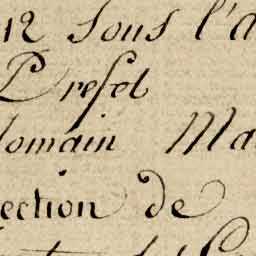 12 sous l'a
Prefet
omain Ma
ection de